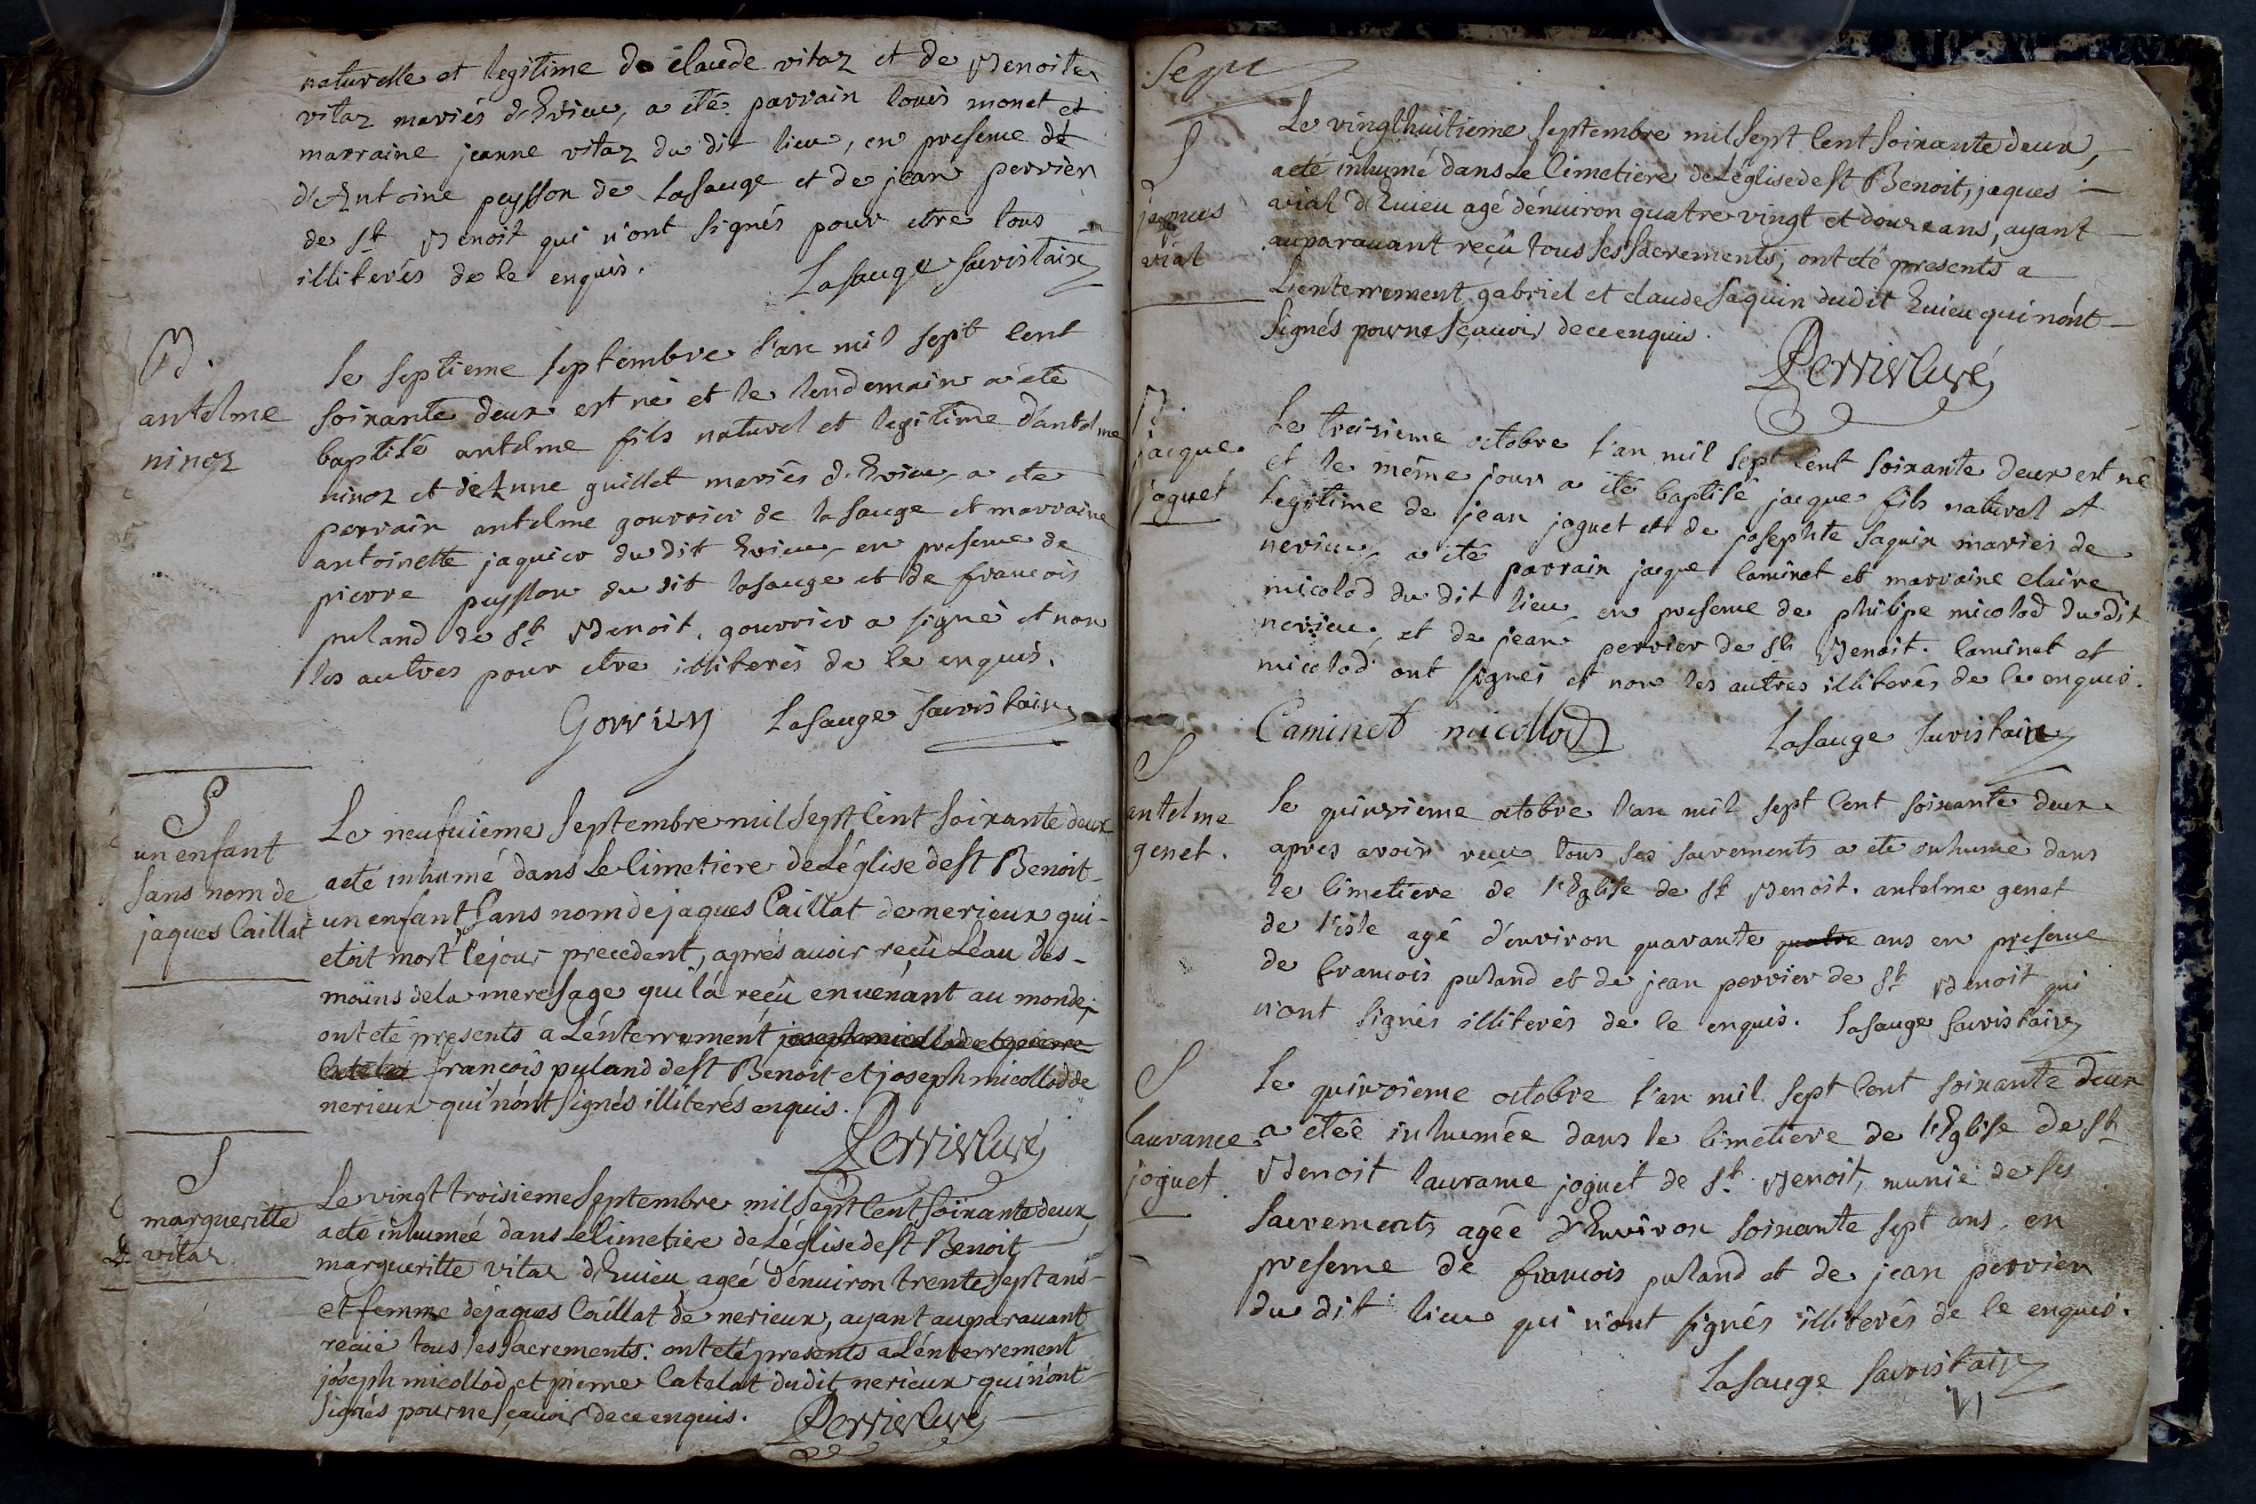 naturelle et legitime de claude vitaz et de Benoite
vitaz mariés d'Evieu, a eté parrain louis monet et
marraine jeanne vitaz du dit lieu, en presence de
d'Antoine peysson de Lasauge et de jean perrier
de St Benoit qui n'ont signés pour etre tous
illiterés de ce enquis.
Lasauge sacristain
antelme
ninoz
Le septieme septembre l'an mil sept cent
soixante deux est né et le lendemain a eté
baptisé antelme fils naturel et legitime d'antelme
ninoz et de Anne guillet mariés d'Evieu, a eté
parrain antelme gourrier de lasauge et marraine
antoinette jaquier du dit Evieu, en presence de
pierre peysson du dit lasauge et de francois
puland de St Benoit, gourrier a signé et non
les autres pour etre illiterés de ce enquis.
Lasauge sacristain
S
un enfant
sans nom de
jaques Caillat
Le neufuieme Septembre mil Sept Cent Soixante deux
a eté inhumé dans Le Cimetiere de L'église de St Benoit
un enfant Sans nom de jaques Caillat de nerieux qui
etoit mort le jour precedent, aprés auoir reçû L'éau dés
moins de la mere sage qui la reçû en uénant au monde;
ont eté presents a L'énterrement joseph micollod et pierre
Catelat francois puland de St Benoit et joseph micollod de
nerieux qui n'ont signés illiterés enquis.
Perrier Curé
S
margueritte
vitaz
Le vingt troisieme Septembre mil Sept Cent Soixante deux
a eté inhumée dans Le Cimetiere de L'église de St Benoit
margueritte vitaz d'Euieu ageé d'énuiron trente sept ans
et femme de jaques Caillat de nerieux, ayant auparauant
reçue tous ses Sacrements: ont eté presents a L'énterrement
joseph micollod et pierre Catelat dudit nerieux qui n'ont
signés pour ne sçauoir de ce enquis.
Perrier Curé
Sept
S
jaques
vial
Le vingthuitieme Septembre mil Sept Cent Soixante deux,
a eté inhumé dans Le Cimetiere de L'église de St Benoit, jaques
vial d'Euieu agé d'énuiron quatre vingt et douze ans, ayant
auparauant reçû tous ses Sacrements, ont eté presents a
L'enterrement gabriel et claude Saquin dudit Euieu qui n'ont
signés pour ne sçauoir de ce enquis.
Perrier Curé
jacque
joguet
Le troisieme octobre l'an mil sept cent soixante deux est né
et le même jour a eté baptisé jacque fils naturel et
legitime de jean joguet et de josephte saquin mariés de
nerieu, a eté parrain jacque Caminet et marraine claire
micolod du dit lieu, en presence de philipe micolod du dit
nerieu, et de jean perrier de St Benoit. Caminet et
micolod ont signés et non les autres illiterés de ce enquis.
Caminet micollod
Lasauge sacristain
S
antelme
genet.
Le quinzieme octobre l'an mil sept cent soixante deux
apres avoir reçu tous ses sacrements a eté inhumé dans
le Cimetiere de l'Eglise de St Benoit. antelme genet
de l'isle agé d'environ quarante quatre ans en presence
de francois puland et de jean perrier de St Benoit qui
n'ont signés illiterés de ce enquis. Lasauge sacristain
S
Laurance
joguet.
Le quinzieme octobre l'an mil sept cent soixante deux
a eteé inhumée dans le Cimetiere de l'Eglise de St
Benoit laurance joguet de St Benoit, munie de ses
sacrements agée d'Environ soixante sept ans, en
presence de francois puland et de jean perrier
du dit lieu qui n'ont signés illiterés de ce enquis.
Lasauge sacristain